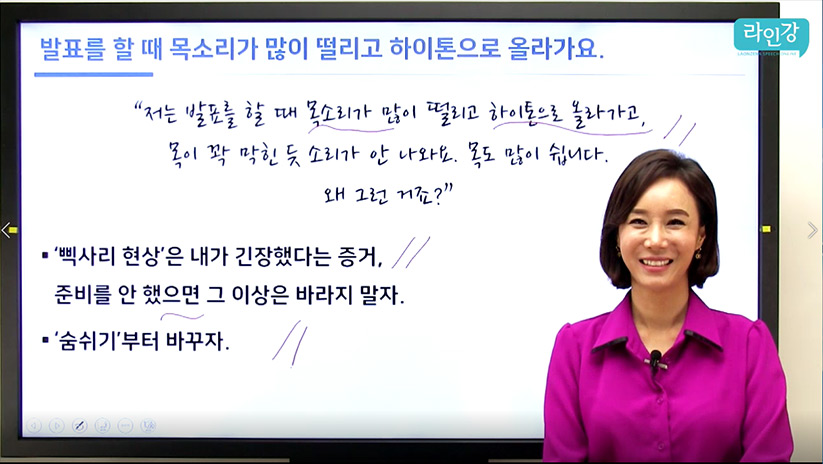 라인강
발표를 할 때 목소리가 많이 떨리고 하이톤으로 올라가요.
“저는 발표를 할 때 목소리가 많이 떨리고 하이톤으로 올라가고,
목이 꽉 막힌 듯 소리가 안 나와요. 목도 많이 쉽니다.
왜 그런 거죠?”
▪ ‘삑사리 현상’은 내가 긴장했다는 증거,
준비를 안 했으면 그 이상은 바라지 말자.
▪ ‘숨쉬기’부터 바꾸자.